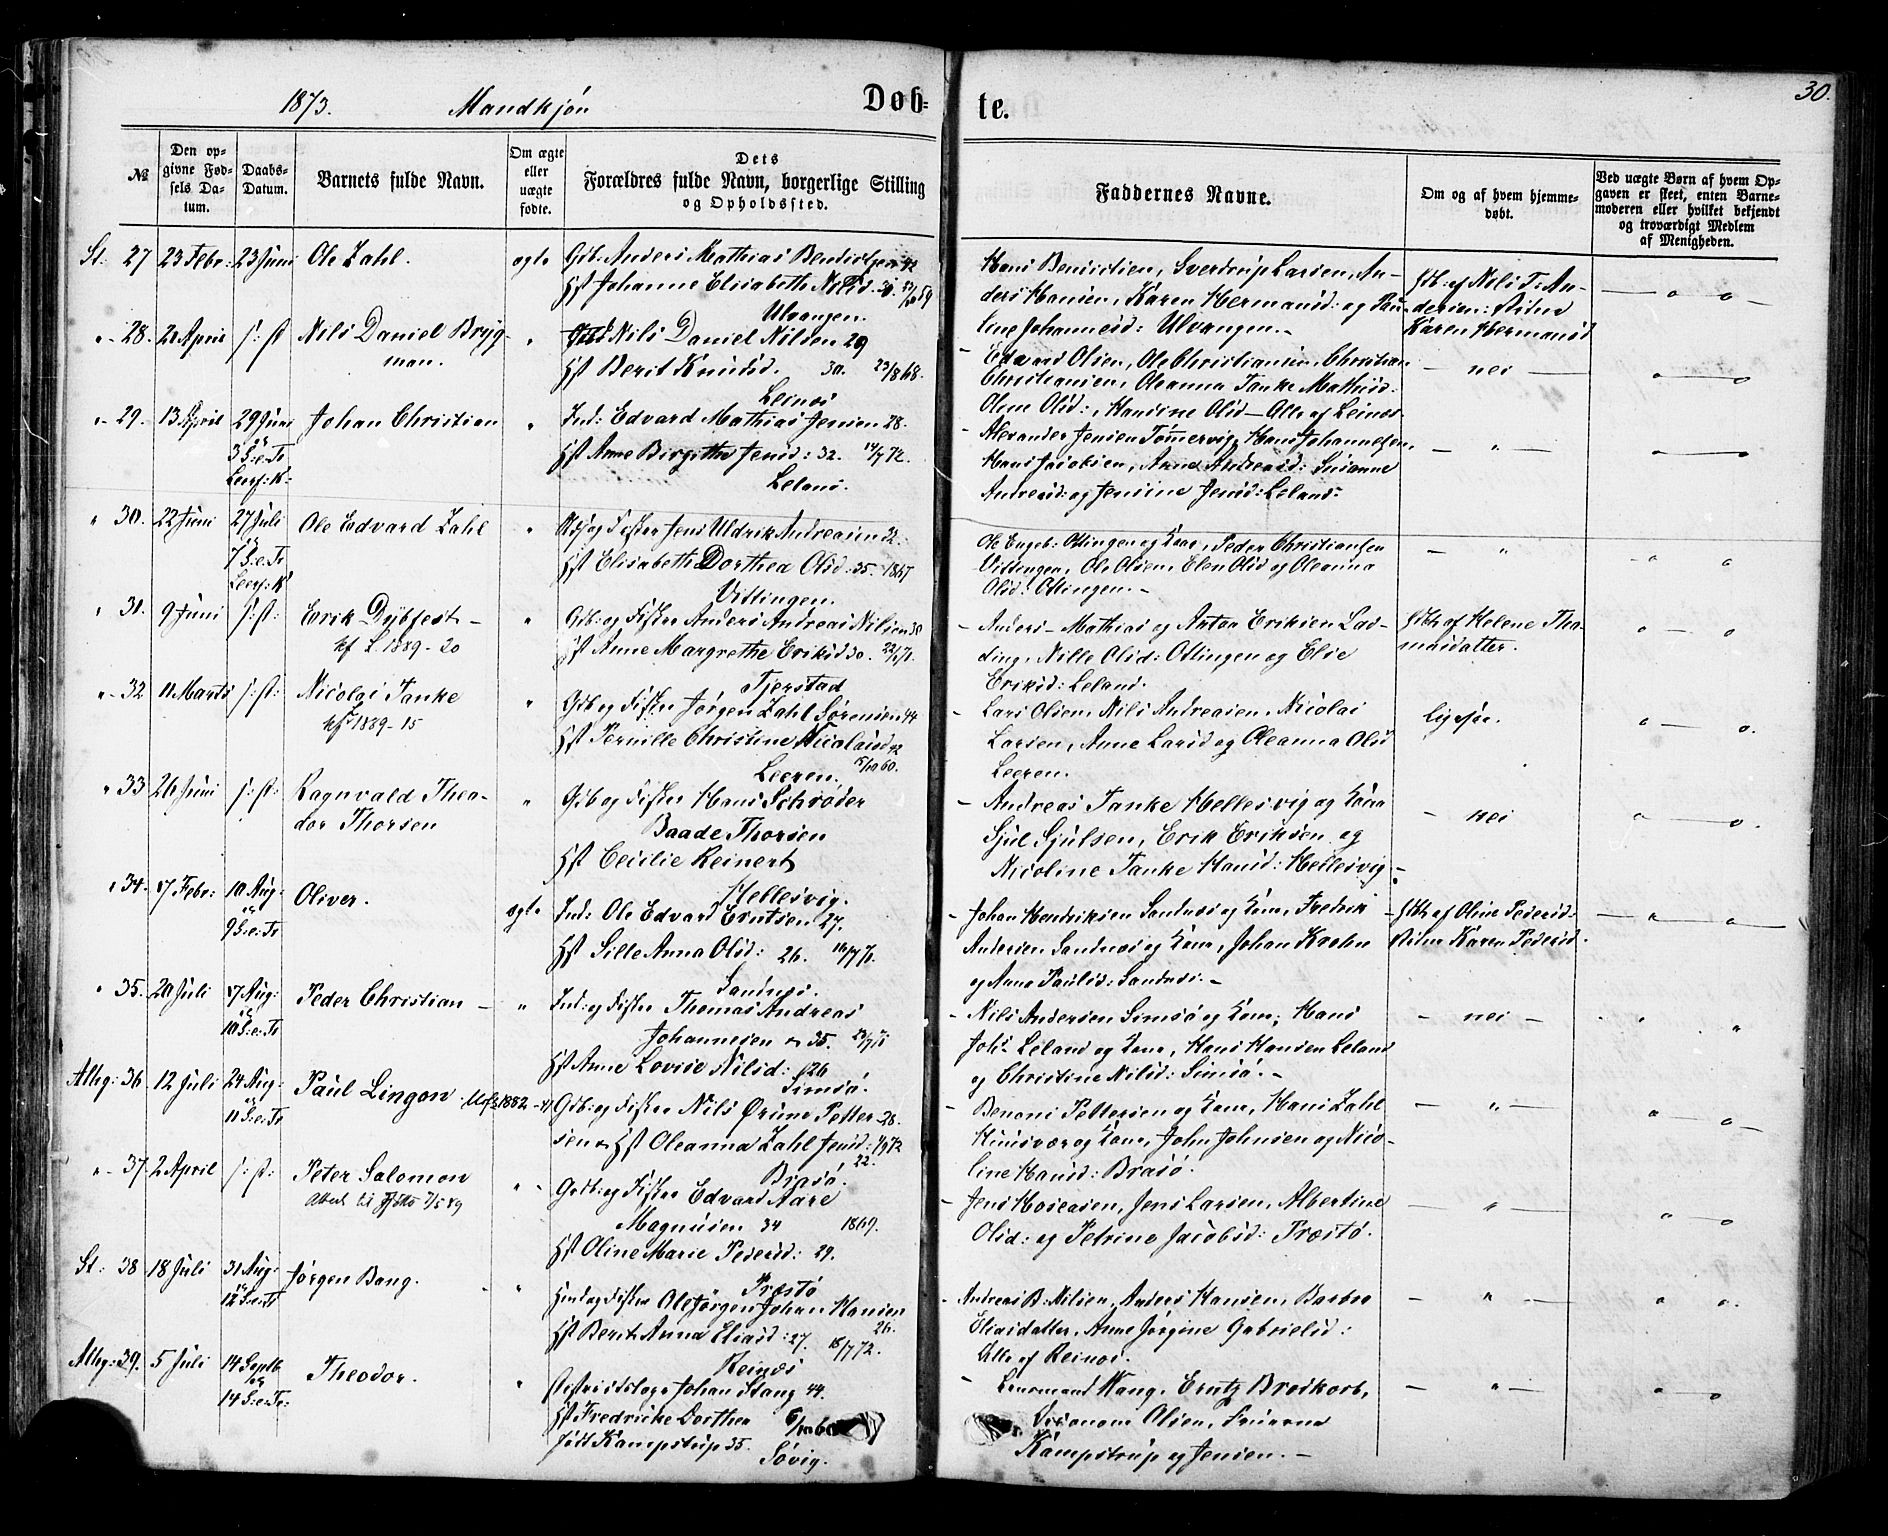 1873. Mandkjøn Døb-
te. 30.
№
Den opgivne Fødsels Datum.
Daabs-Datum.
Barnets fulde Navn.
Om ægte eller uægte fødte.
Dets Forældres fulde Navn, borgerlige Stilling og Opholdssted.
Faddernes Navne.
Om og af hvem hjemmedøbt.
Ved uægte Børn af hvem Opgaven er skeet, enten Barnemoderen eller hvilket bekjendt og troværdigt Medlem af Menigheden.
St: 27 23 Febr: 23 Juni Ole Zahl. ægte Gdb. Anders Mathias Bendictsen 42
Hst Johanne Elisabeth Nilsd. 30.
Ulvangen.
Hans Benedictsen, Sverdrup Larsen, An-
ders Hansen, Karen Hermansd: og Pau-
line Johannesd: Ulvangen.-
Hdb. af Nils T. An-
dersen: Vidne
Karen Hermansd
" 28. 21 April s: st Nils Daniel Bryg-
man. " Nils Daniel Nilsen 29
Hst Berit Knudsd. 30. 23/8 68.
Leines
- Edvard Olsen, Ole Christiansen, Christian
Christiansen, Oleanna Tanke Mathisd.
Oline Olsd:, Hansine Olsd - Alle af Leines
- nei -
" 29. 13 April 29 Juni Johan Christian " Ind: Edvard Mathias Jensen 28.
3 S: e: Tr
Leerf: K:
Hst Anne Birgitha Jensd: 32. 14/7 72.
Leland.
- Alexander Jensen Tømmervig, Hans Johannesen,
Hans Jacobsen, Anna Andreasd: Susanne
Andreasd: og Jensine Jensd: Leland-
" 30. 22 Juni 27 Juli Ole Edvard Zahl " og Fisker Jens Uldrik Andreasen 32.
7 S: e: Tr
Leerf: K
Hst Elisabeth Dorthea Olsd: 35. 1867
Vittingen.
Ole Engeb: Ottingen og Kone, Peder Christiansen
Vittingen, Ole Olsen, Elen Olsd og Oleanna
Olsd: Ottingen.-
" 31. 9 Juni s: st: Erik Dybfest- " Gdb: og Fisker Anders Andreas Nilsen 38
kf L 1889-20
Hst Anne Margrethe Eriksd 30. 22/7 71.
Tjerstad
- Anders - Mathias og Anton Eriksen Lad-
ding, Nille Olsd: Ottingen og Elie
Eriksd: Leland.
Hdb. af Helene Tho-
masdatter.
" 32 11 Marts s: st: Nicolai Tanke " Gdb og Fisker Jørgen Zahl Sørensen 44
kf 1889-15
Hst Pernille Christine Nicolaisd 42
Leeren. 15/10 60.
- Lars Olsen, Nils Andreasen, Nicolai
Larsen, Anne Larsd og Oleanna Olsd
Leeren.
ligesaa.
" 33 26 Juni s: st: Ragnvald Theo-
dor Thorsen " Gdb og Fisker Hans Schrøder
Baade Thorsen
Hst Cecilie Reinert
Hellesvig.
- Andreas Tanke Hellesvig og Kone
Sjul Sjulsen, Erik Eriksen og
Nicoline Tanke Hansd: Hellesvig-
- nei
" 34. 17 Febr: 10 Aug: Oliver. ægte Ind: Ole Edvard Erntsen 27.
9 S: e: Tr
Hst Sille Anna Olsd: 26. 16/7 71.
Sandnes.
- Johan Hendriksen Sandnes og Kone, Fredrik
Andersen Sandnes og Kone, Johan Krohn
og Anna Paulsd: Sandnes.-
- Hdb. af Oline Pedersd:
Vidne Karen Pedersd.
" 35. 20 Juli 17 Aug: Peder Christian - " Ind: og Fisker Thomas Andreas
10 S: e: Tr
Johannesen 35. 23/7 71
Hst Anne Lovise Nilsd: 26
Simsø.
- Nils Andersen Simsø og Kone, Hans
Joh: Leland og Kone, Hans Hansen Leland
og Christine Nilsd: Simsø.-
- nei -
Alhg: 36 12 Juli 24 Aug: Paul Lingon 1882-
11 S: e: Tr
Gdb: og Fisker Nils Ørum Petter- 28.
sen & Hst Oleanna Zahl Jensd: 1/9 72
22.
Brasø.
- Benoni Pettersen og Kone, Hans Zahl
Huusvær og Kone, John Johnsen og Nico-
line Hansd: Brasø.
" 37 2 April s: st: Peter Salomon " Gdb: og Fisker Edvard Aare
Attest til 7/5 89
Magnusen 34 1869.
Hst Oline Marie Pedersd: 29.
Præstø
- Jens Hoseasen, Jens Larsen, Albertine
Olsd: og Petrine Jacobsd: Præstø.
St: 38 18 Juli 31 Aug: Jørgen Bang. " og Fisker Ole Jørgen Johan Hansen
12 S: e: Tr
26.
Hst Berit Anna Eliasd: 27. 18/7 72.
Reines
- Andreas B. Nilsen, Anders Hansen, Barbro
Eliasdatter, Anne Jørgine Gabrielsd:
Alle af Reines.
Alhg: 39. 5 Juli 14 Septb Theodor. " Distrietslæge Johan Stang 44.
14 S: e: Tr:
Hst Fredricke Dorthea 6/10 60
født Kampstrup 35.
Søvig.
- Lensmand Wang, Erntz Breikorb,
Olsen, Fruerne
Kampstrup og Jensen.-